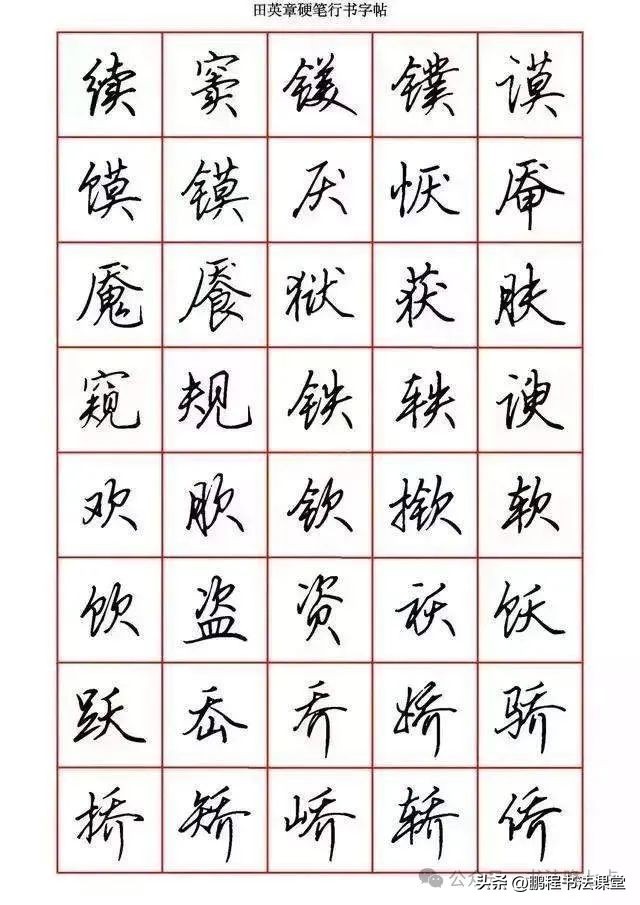 田英章硬笔行书字帖
续 窦 镁 镤 谟
馍 镆 厌 恹 魇
魇 餍 狱 获 肤
窥 规 铁 轶 谀
欢 欣 钦 揿 软
饮 盗 资 袄 饫
跃 岙 乔 娇 骄
挢 矫 峤 轿 侨
头条 @鹏程书法课堂